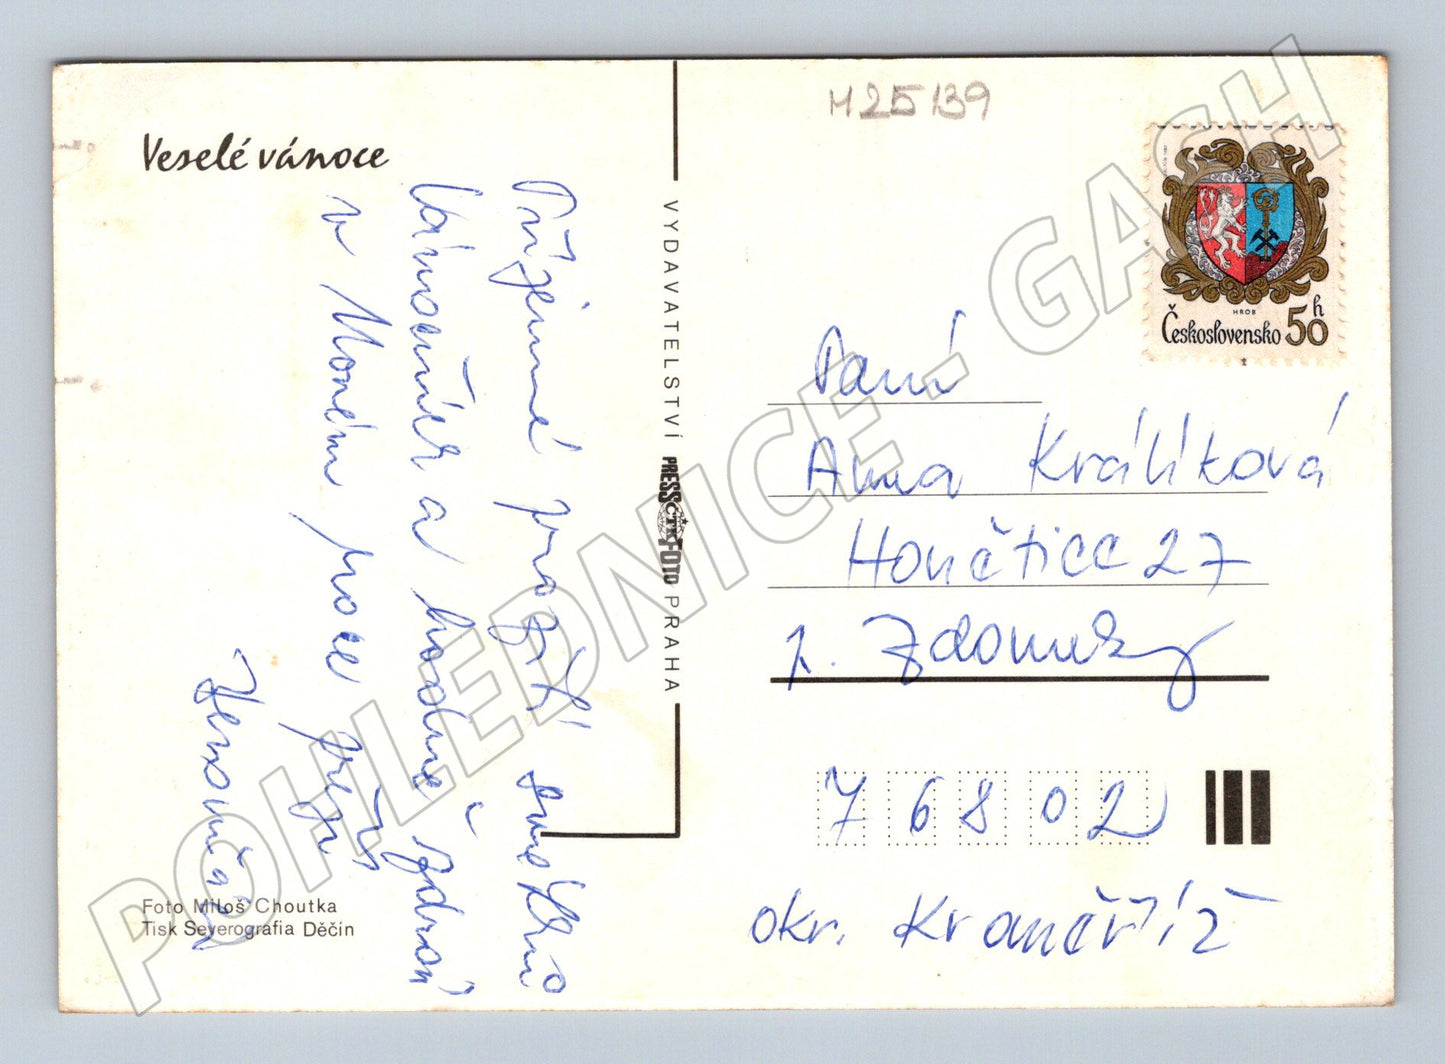 Veselé vánoce
Příjemné prožití svátků
Vánočních a hodně zdraví
v Novém roce přeje
Foto Miloš Choutka
Tisk Severografia Děčín
VYDAVATELSTVÍ PRESSFOTO PRAHA
ČTK
H25139
HROB
Československo 50 h
Paní
Anna Králíková
Honětice 27
p. Zdounky
76802
okr. Kroměříž
POHLEDNICE - GASH